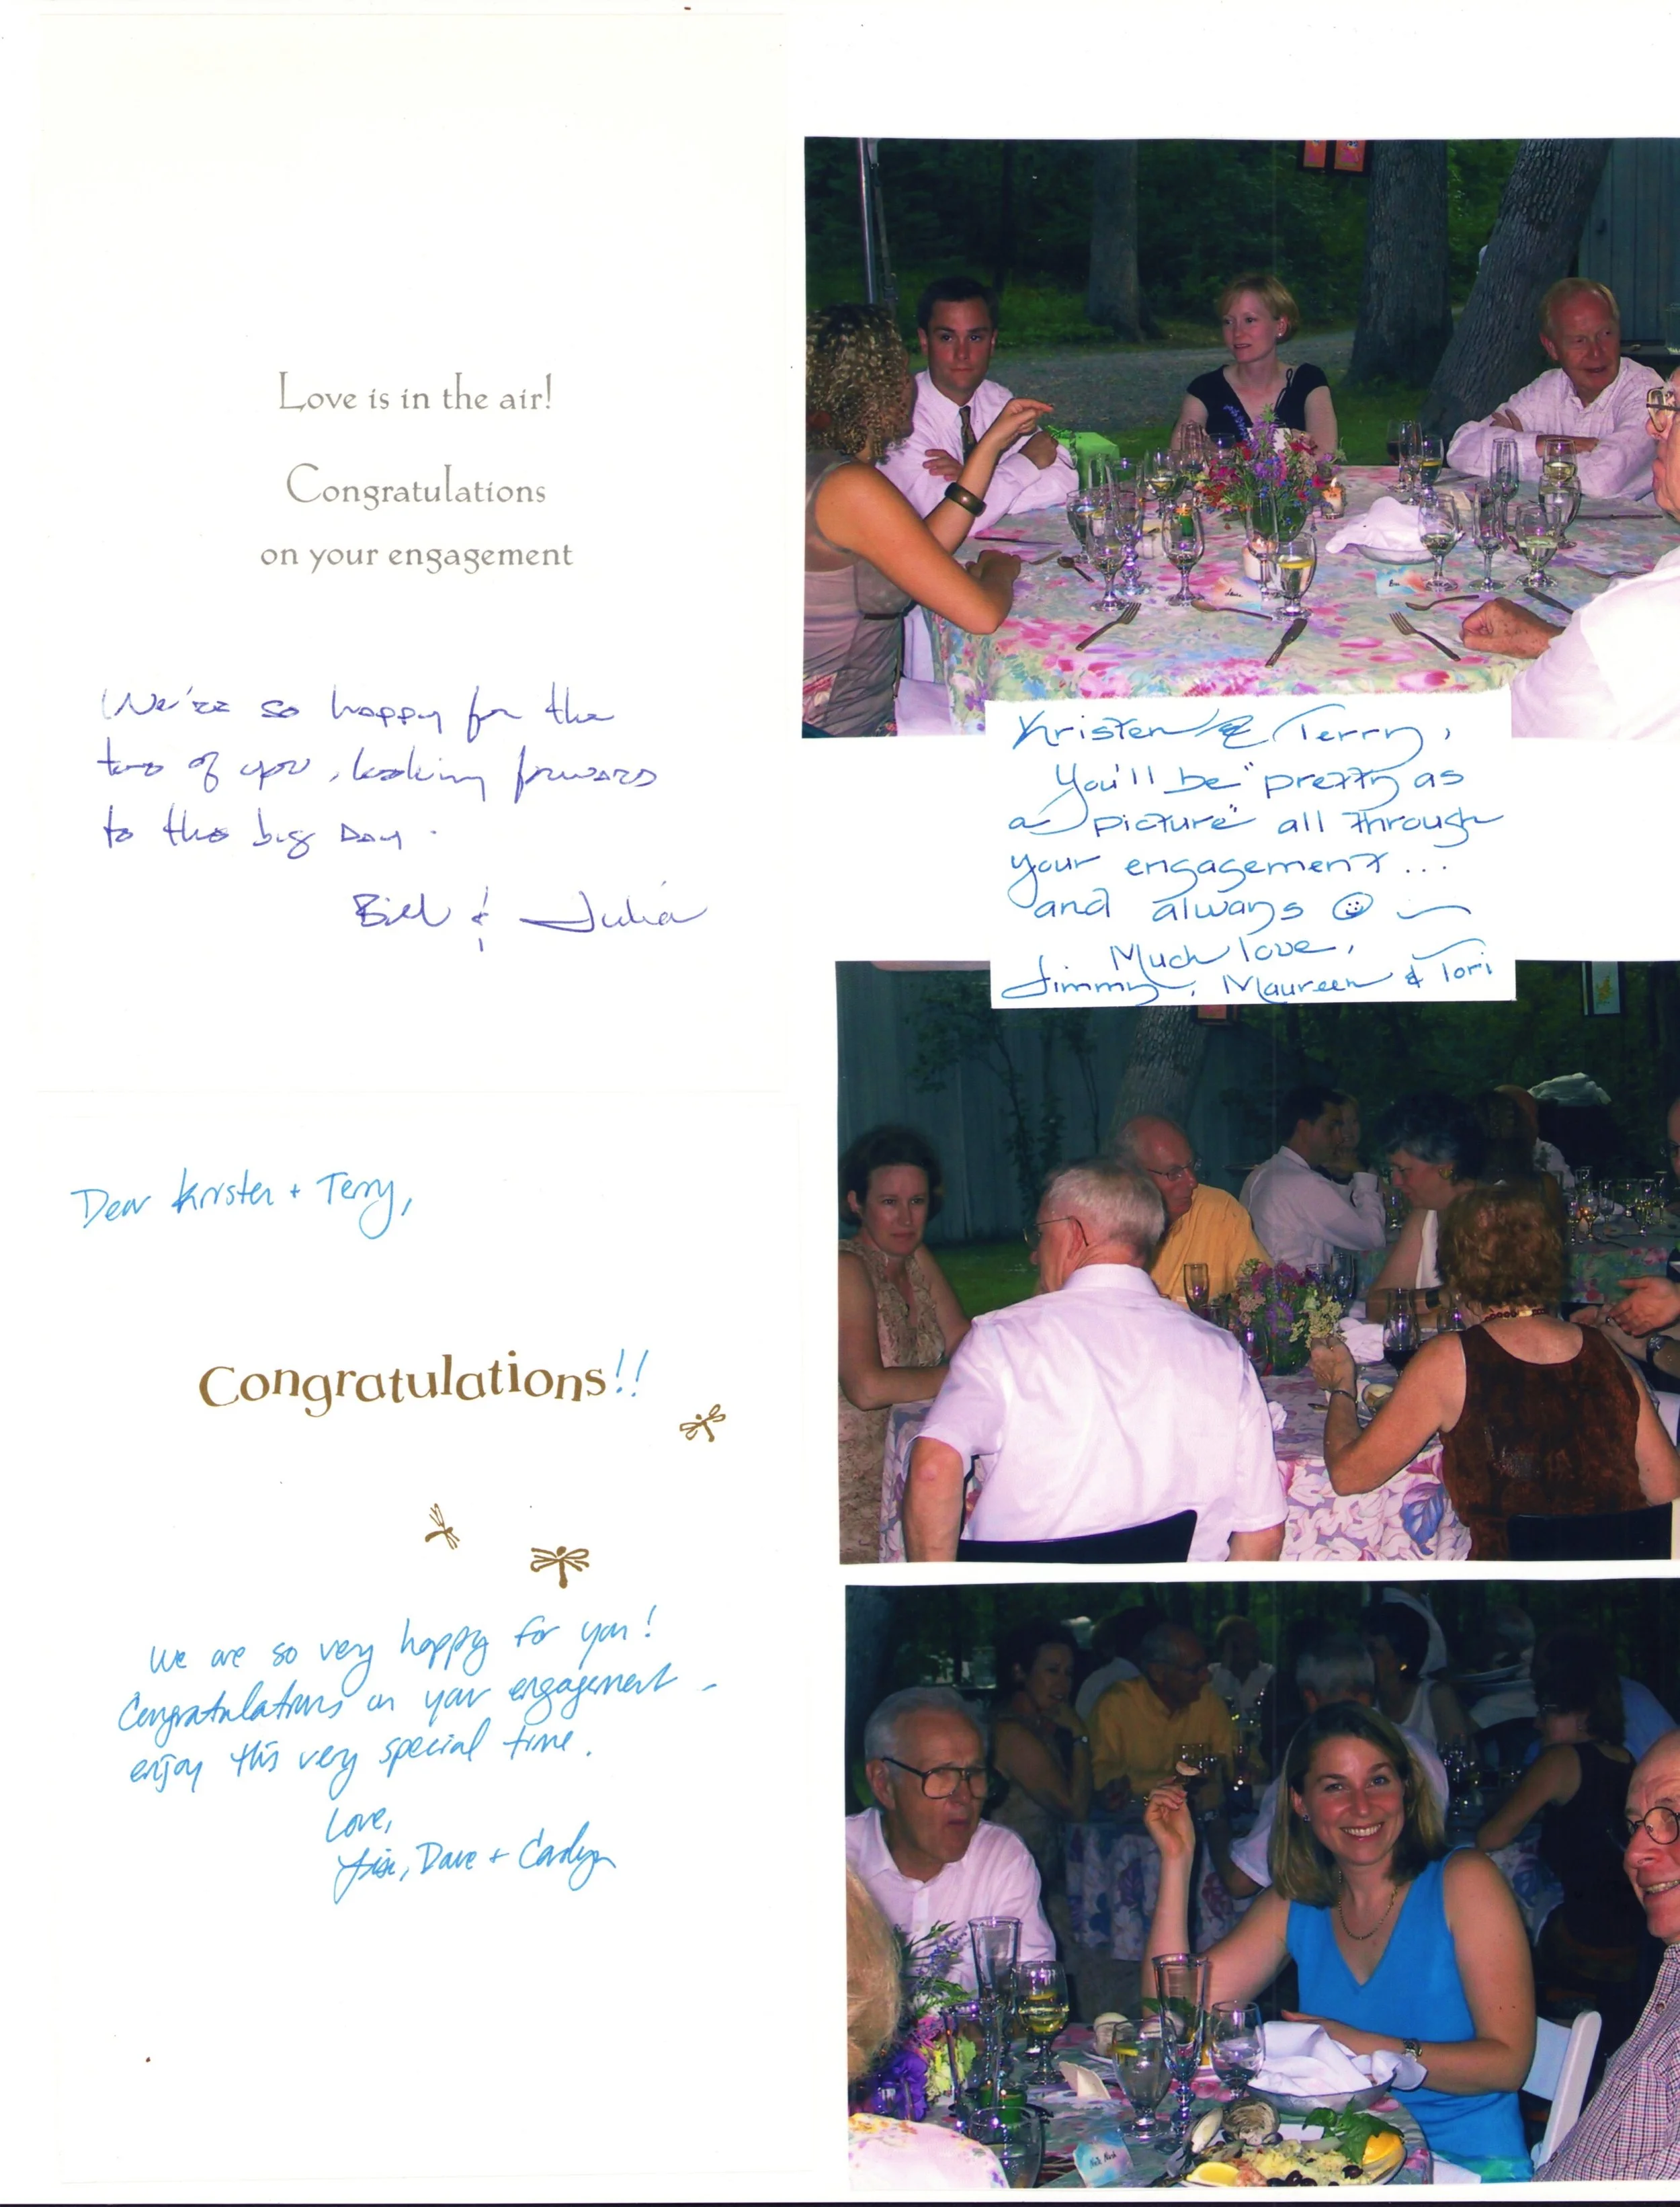 Love is in the air!
Congratulations
on your engagement
We're so happy for the
two of you, looking forward
to the big Day.
Bill & Julia
Kristen & Terry,
You'll be "pretty as
a picture" all through
your engagement...
and always ☺
Much love,
Jimmy, Maureen & Tori
Dear Kristen + Terry,
Congratulations!!
We are so very happy for you!
Congratulations on your engagement -
enjoy this very special time.
Love,
Dave + Carolyn